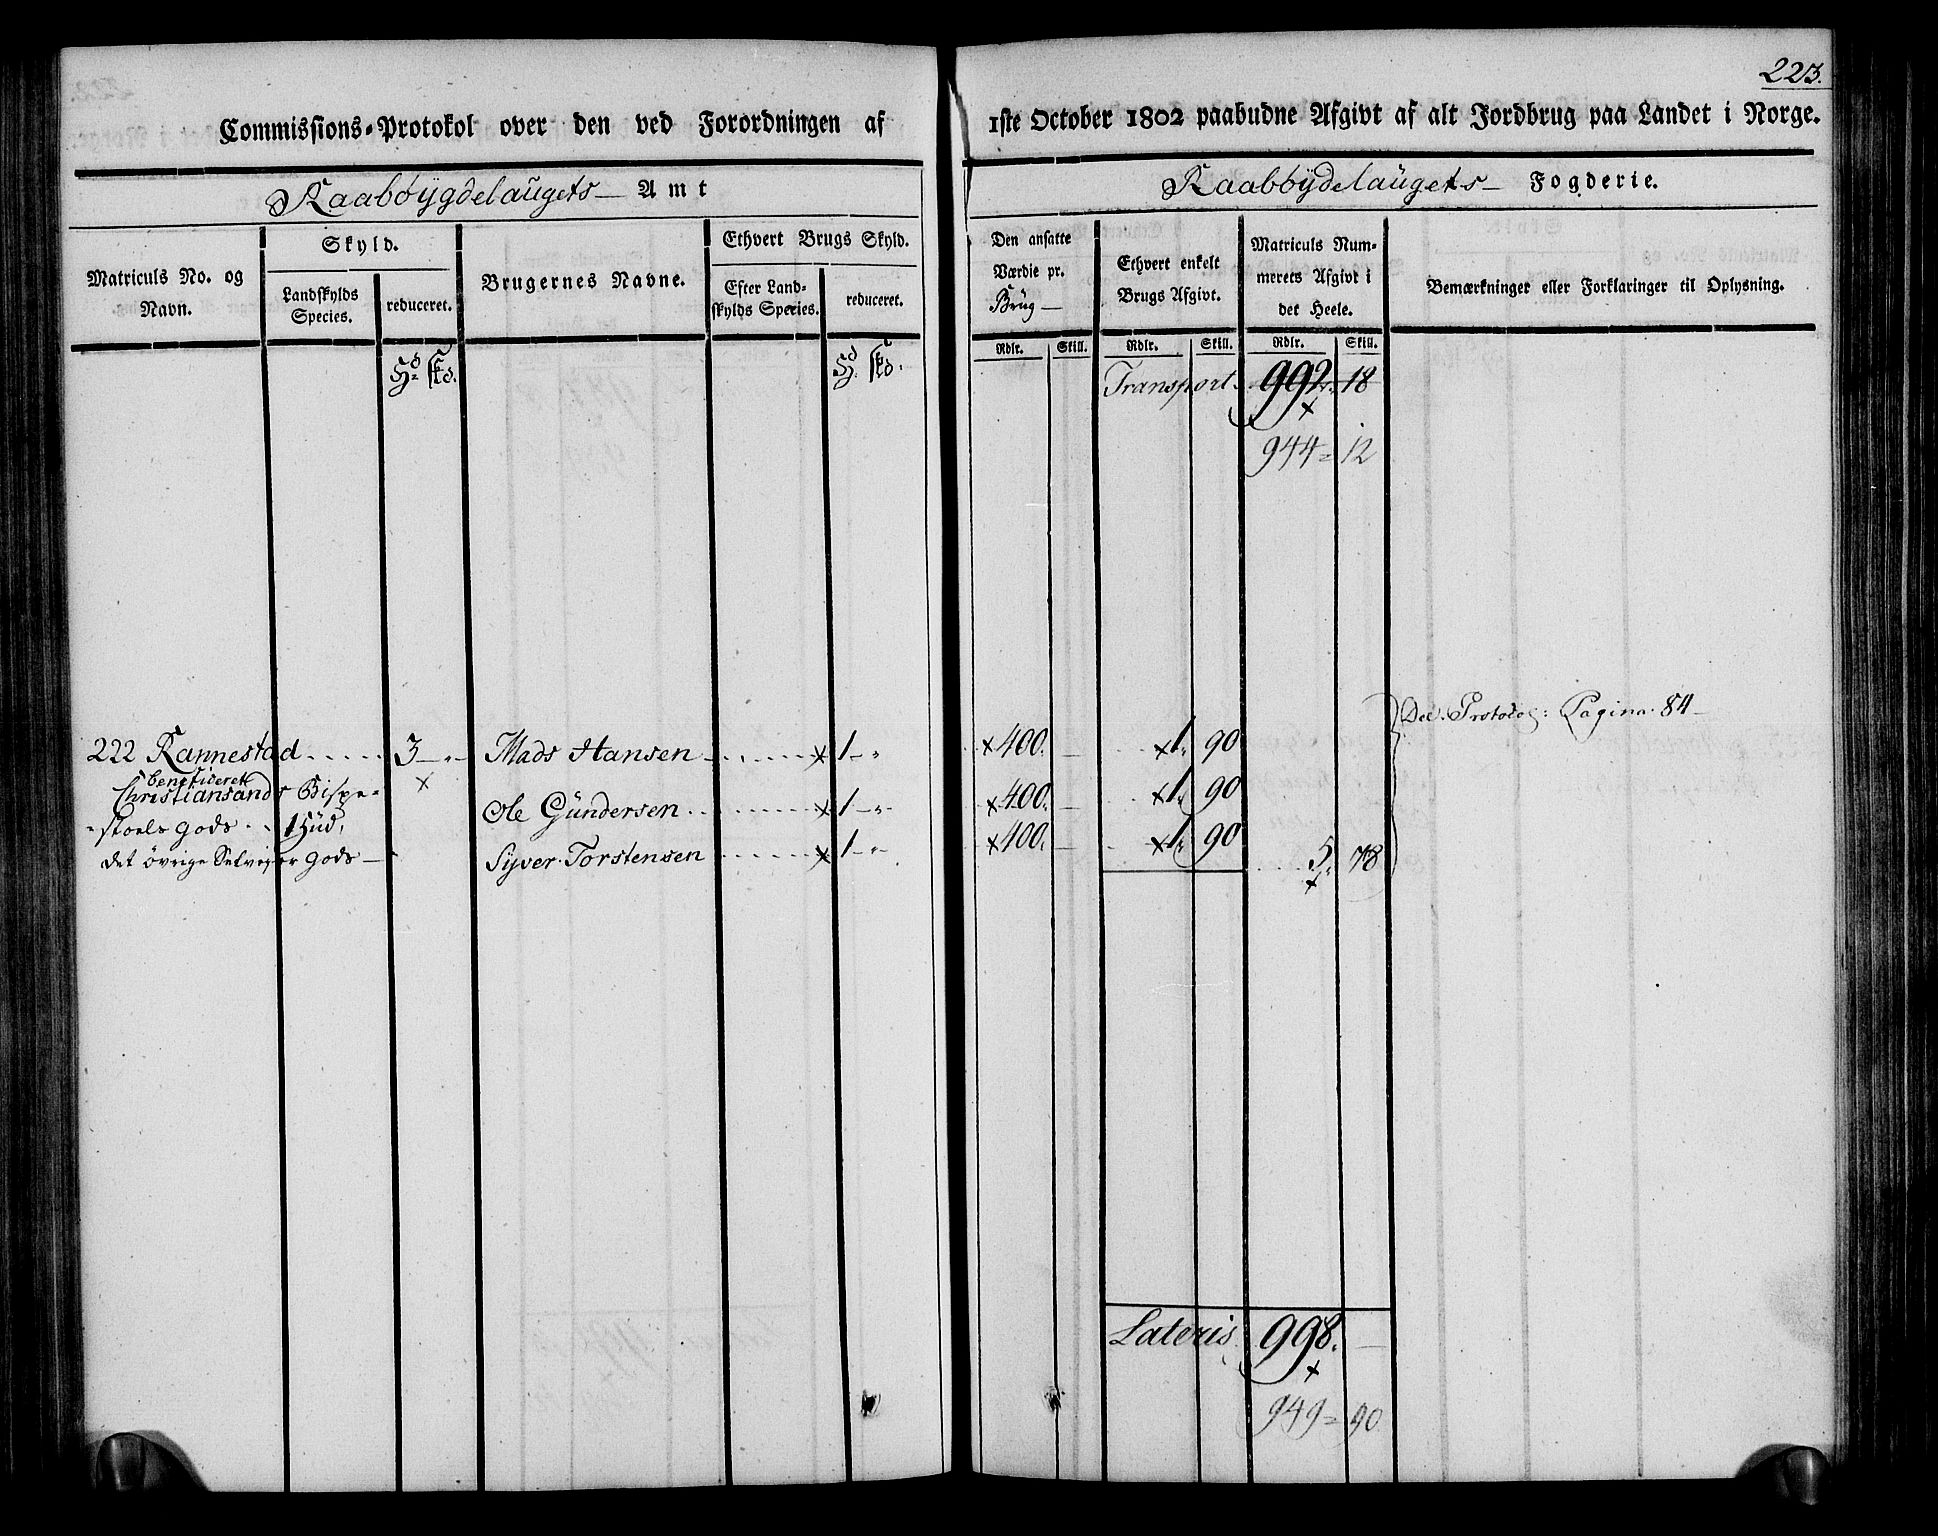 223.
Commissions-Protokol over den ved Forordningen af 1ste October 1802 paabudne Afgivt af alt Jordbrug paa Landet i Norge.
Raabøygdelaugets Amt
Raabøydelaugets Fogderie.
Matriculs No. og Navn.
Skyld.
Landskylds Species.
reduceret.
Brugernes Navne.
Ethvert Brugs Skyld.
Efter Landskylds Species.
reduceret.
Den ansatte Værdie pr. Brüg
Ethvert enkelt Brugs Afgivt.
Matriculs Nummerets Afgivt i det Heele.
Bemærkninger eller Forklaringer til Oplysning.
Hd. skd.
Hd. skd.
Rdlr. Skill. Rdlr. Skill. Rdlr. Skill.
Transport. 992. 18
944 = 12
Ded. Protocol: Pagina. 84
222 Rannestad 3 — " — Mads Hansen × 1 — " × 400. — × 1. 90
beneficeret
Christiansands Bispe=
=stoels gods . . 1 Hüd, Ole Gündersen × 1 — " × 400. — × 1. 90
det övrige Selveyer gods — Syver Torstensen × 1 — " × 400. — × 1. 90
5. 78
Lateris 998. —
949 = 90